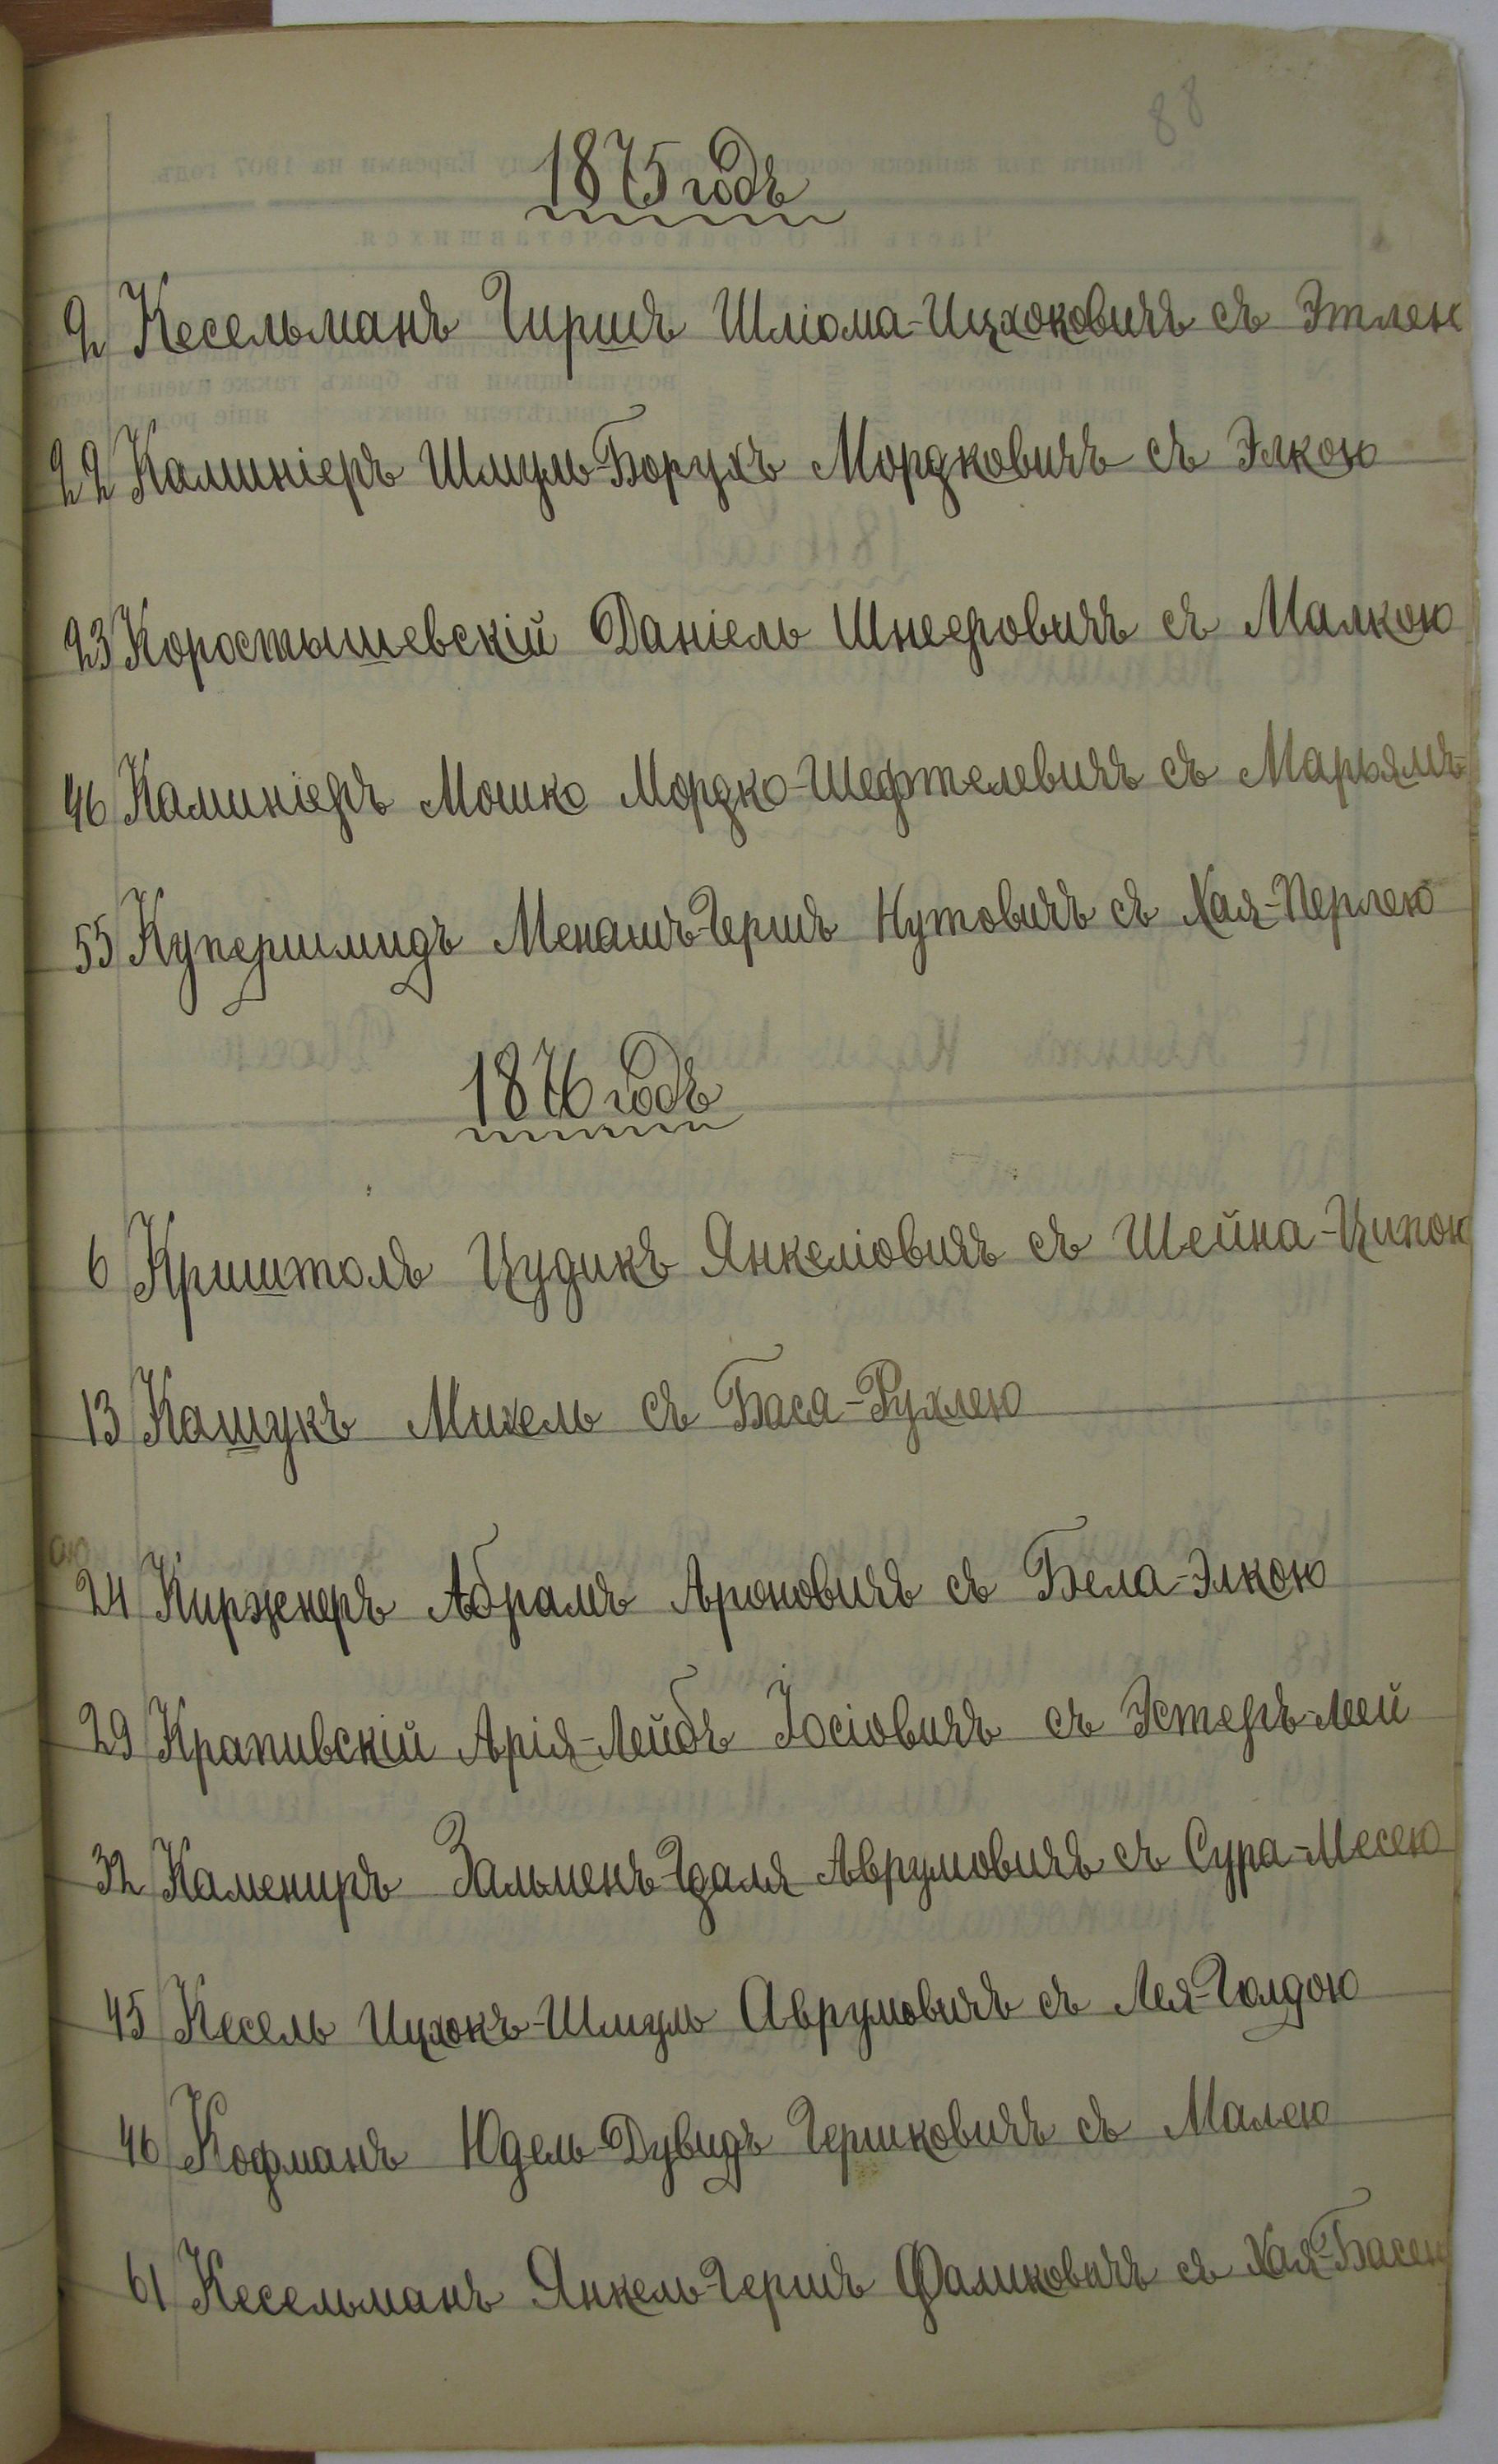 88
1875 годъ
2 Кесельманъ Гиршъ Шліома-Ицхоковичъ съ Этлею
22 Каминіеръ Шмуль-Борухъ Мордковичъ съ Элкою
23 Коростышевскій Даніель Шнееровичъ съ Малкою
46 Каминіеръ Мошко Мордко-Шефтелевичъ съ Марьямъ-
55 Купершмидъ Менашъ-Гершъ Нутовичъ съ Хая-Перлею
1876 годъ
6 Криштолъ Цудикъ Янкеліовичъ съ Шейна-Ципою
13 Кашукъ Михель съ Баса-Рухлею
24 Киржнеръ Абрамъ Ароновичъ съ Бела-Элкою
29 Крапивскій Арія-Лейбъ Іосіовичъ съ Эстеръ-Леей
32 Камениръ Зальменъ-Гдаля Аврумовичъ съ Сура-Месею
45 Кесель Ицхокъ-Шмуль Аврумовичъ съ Лея-Голдою
46 Кофманъ Юдель-Дувидъ Гершковичъ съ Малею
61 Кесельманъ Янкель-Гершъ Фаликовичъ съ Хая-Басею